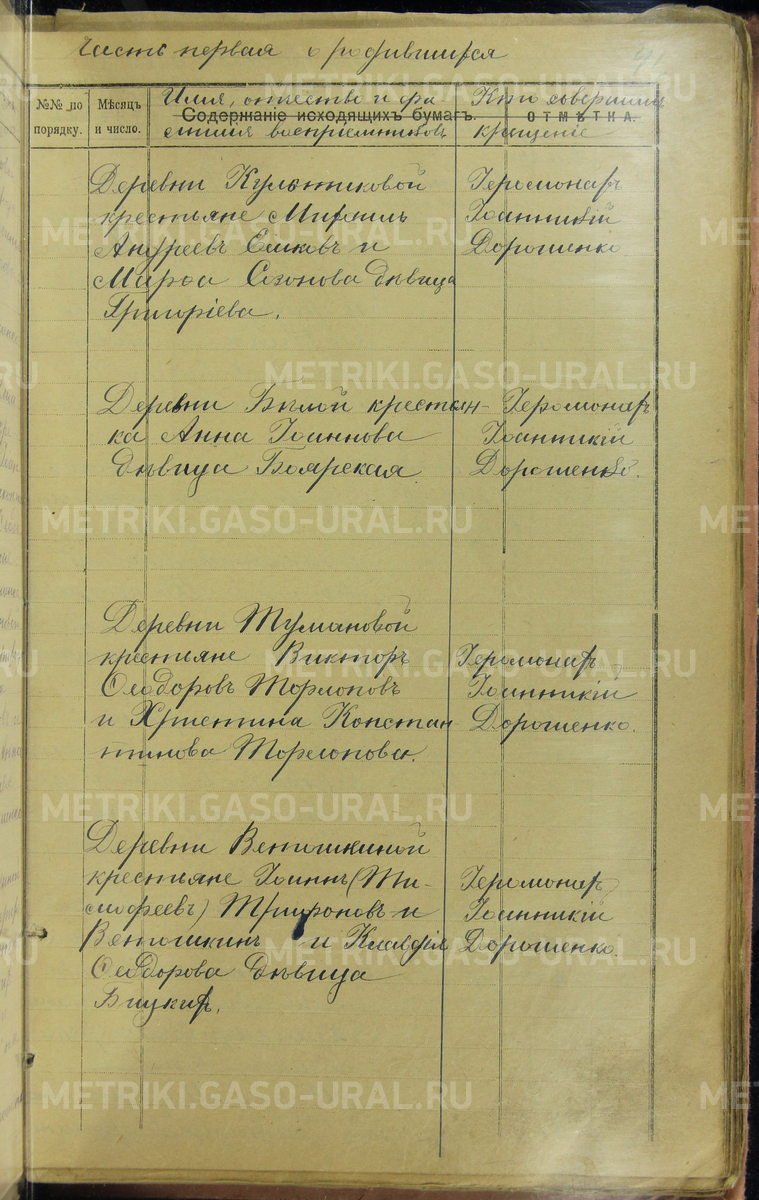 Часть первая о родившихся
№№ по порядку.
Мѣсяцъ и число.
Имя, отчество и фа-
милия восприемниковъ
Содержаніе исходящихъ бумагъ.
Кто совершилъ
крещеніе
ОТМѢТКА.
Деревни Култиковой
крестьяне Мираилъ
Андреевъ Ешковъ и
Марѳа Созонова дѣвица
Григоріева.
Іеромонахъ
Іоанникій
Дорошенко
Деревни Бѣлой крестьян-
ка Анна Іоаннова
дѣвица Боярская.
Іеромонахъ
Іоанникій
Дорошенко.
Деревни Тумановой
крестьяне Викторъ
Ѳеодоровъ Торлоповъ
и Христина Констан
тинова Торлопова.
Іеромонахъ
Іоанникій
Дорошенко.
Деревни Ветошкиной
крестьяне Іоаннъ (Ти-
мофеевъ) Трифоновъ и
Ветошкинъ и Клавдія
Ѳеодорова дѣвица
Бицкихъ.
Іеромонахъ
Іоанникій
Дорошенко.
METRIKI.GASO-URAL.RU